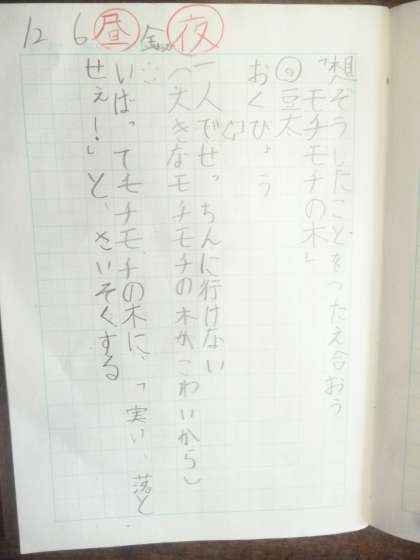 12 6 昼 金 夜
想ぞうしたことをつたえ合おう
「モチモチの木」
◎豆太
おくびょう
一人でせっちんに行けない
(大きなモチモチの木がこわいから)
いばってモチモチの木に、「実い、落と
せぇ!」と、さいそくする